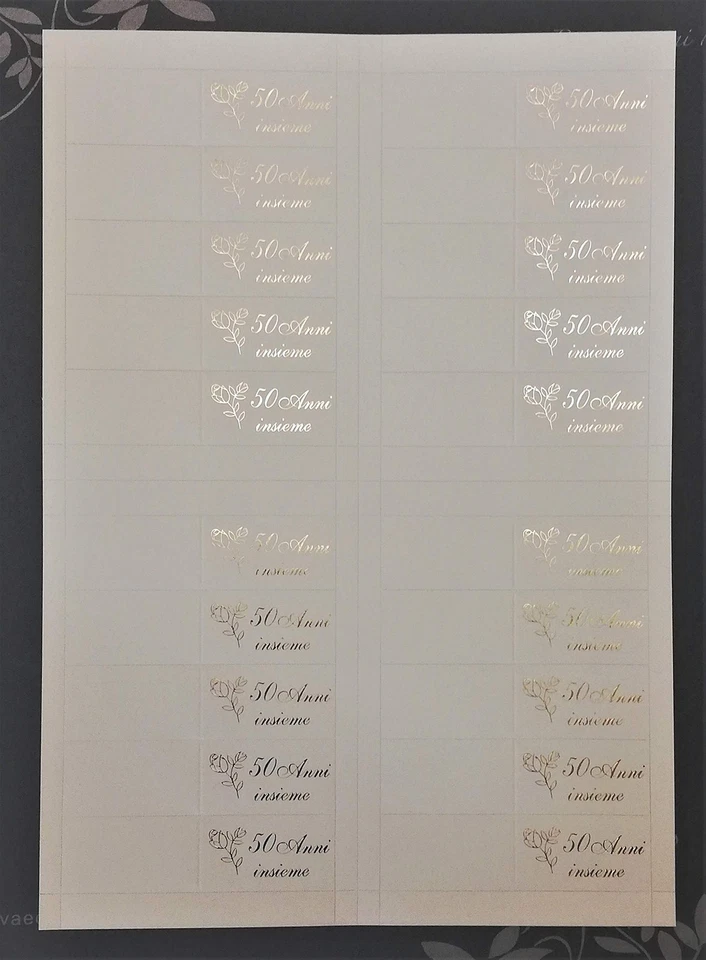 50 Anni
insieme
50 Anni
insieme
50 Anni
insieme
50 Anni
insieme
50 Anni
insieme
50 Anni
insieme
50 Anni
insieme
50 Anni
insieme
50 Anni
insieme
50 Anni
insieme
50 Anni
insieme
50 Anni
insieme
50 Anni
insieme
50 Anni
insieme
50 Anni
insieme
50 Anni
insieme
50 Anni
insieme
50 Anni
insieme
50 Anni
insieme
50 Anni
insieme